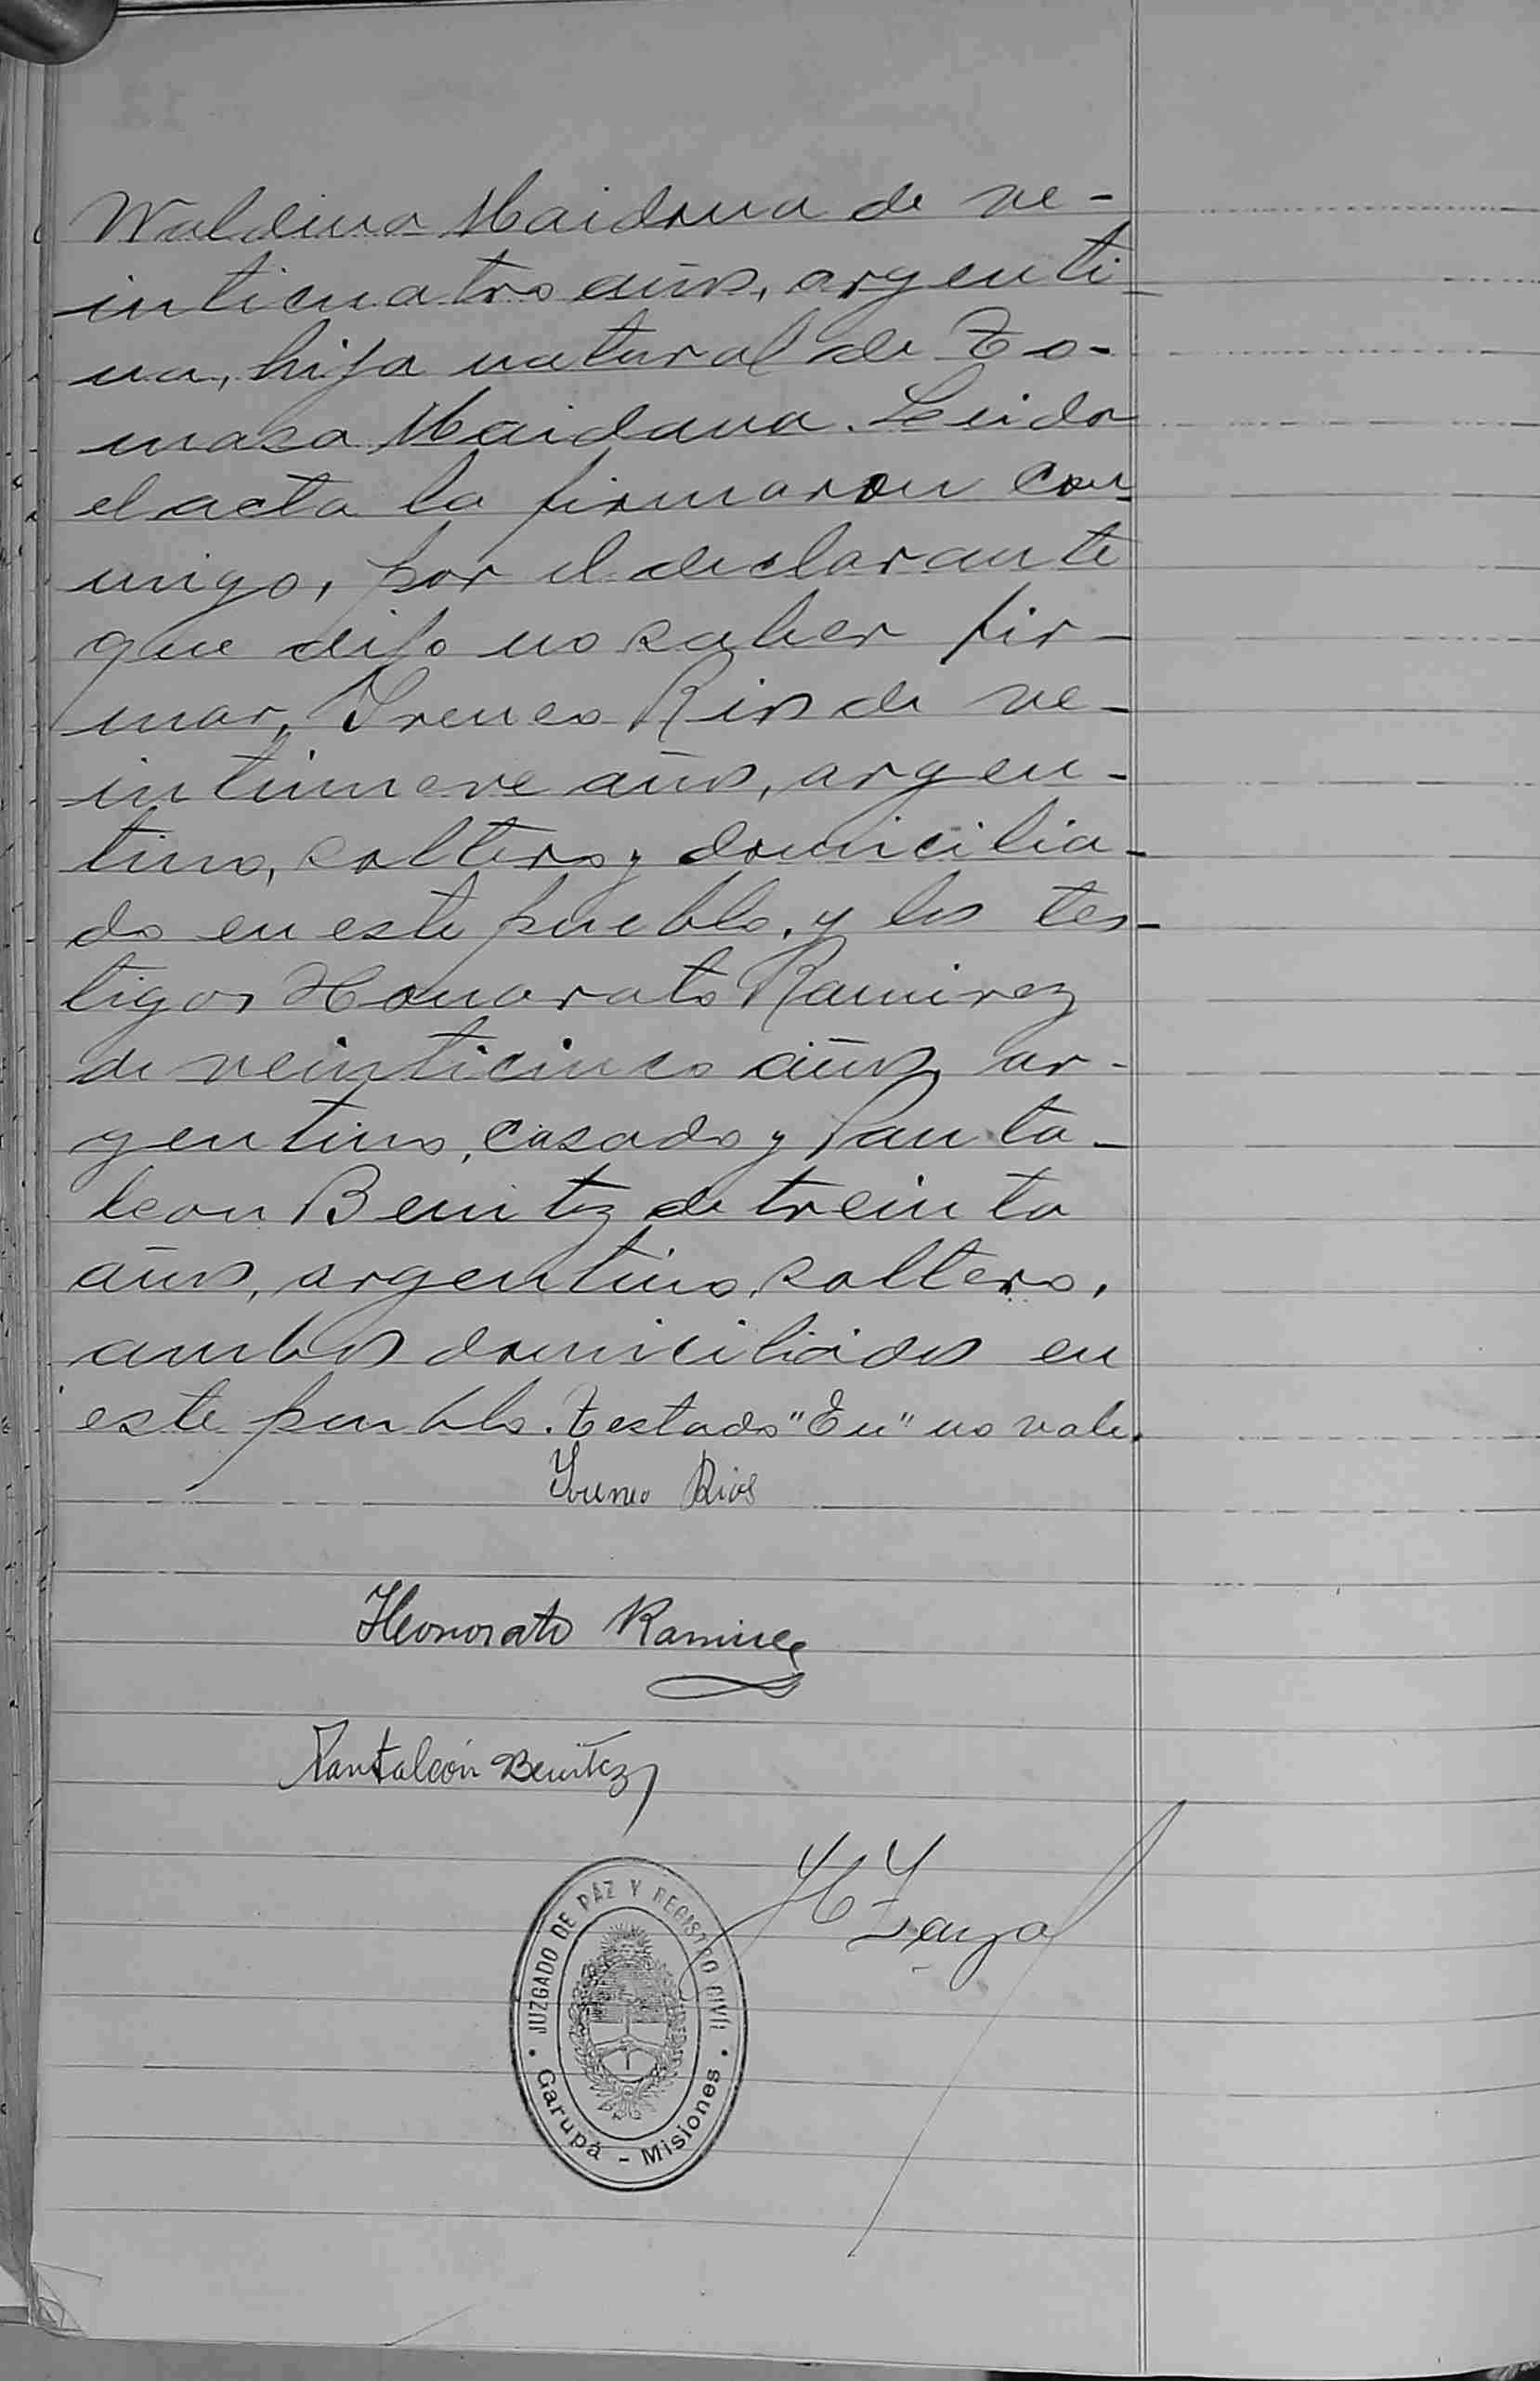 Waldina Maidana de ve-
inticuatro años, argenti-
na, hija natural de To-
masa Maidana. Leida
el acta la firmaron con-
migo, por el declarante
que dijo no saber fir-
mar, Ireneo Rios de ve-
intinueve años, argen-
tino, soltero y domicilia-
do en este pueblo, y los tes-
tigos Honorato Ramirez
de veinticinco años, ar-
gentino, casado y Panta-
leon Benitez de treinta
años, argentino, soltero,
ambos domiciliados en
este pueblo. Testado "En" no vale.
Ireneo Rios
Honorato Ramirez
Pantaleón Benítez
JUZGADO DE PAZ Y REGISTRO CIVIL
Garupá - Misiones